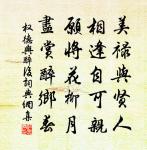 美祿與賢人
相逢自可親
願將花柳月
盡賞醉鄉春
權德輿醉後詞興個集